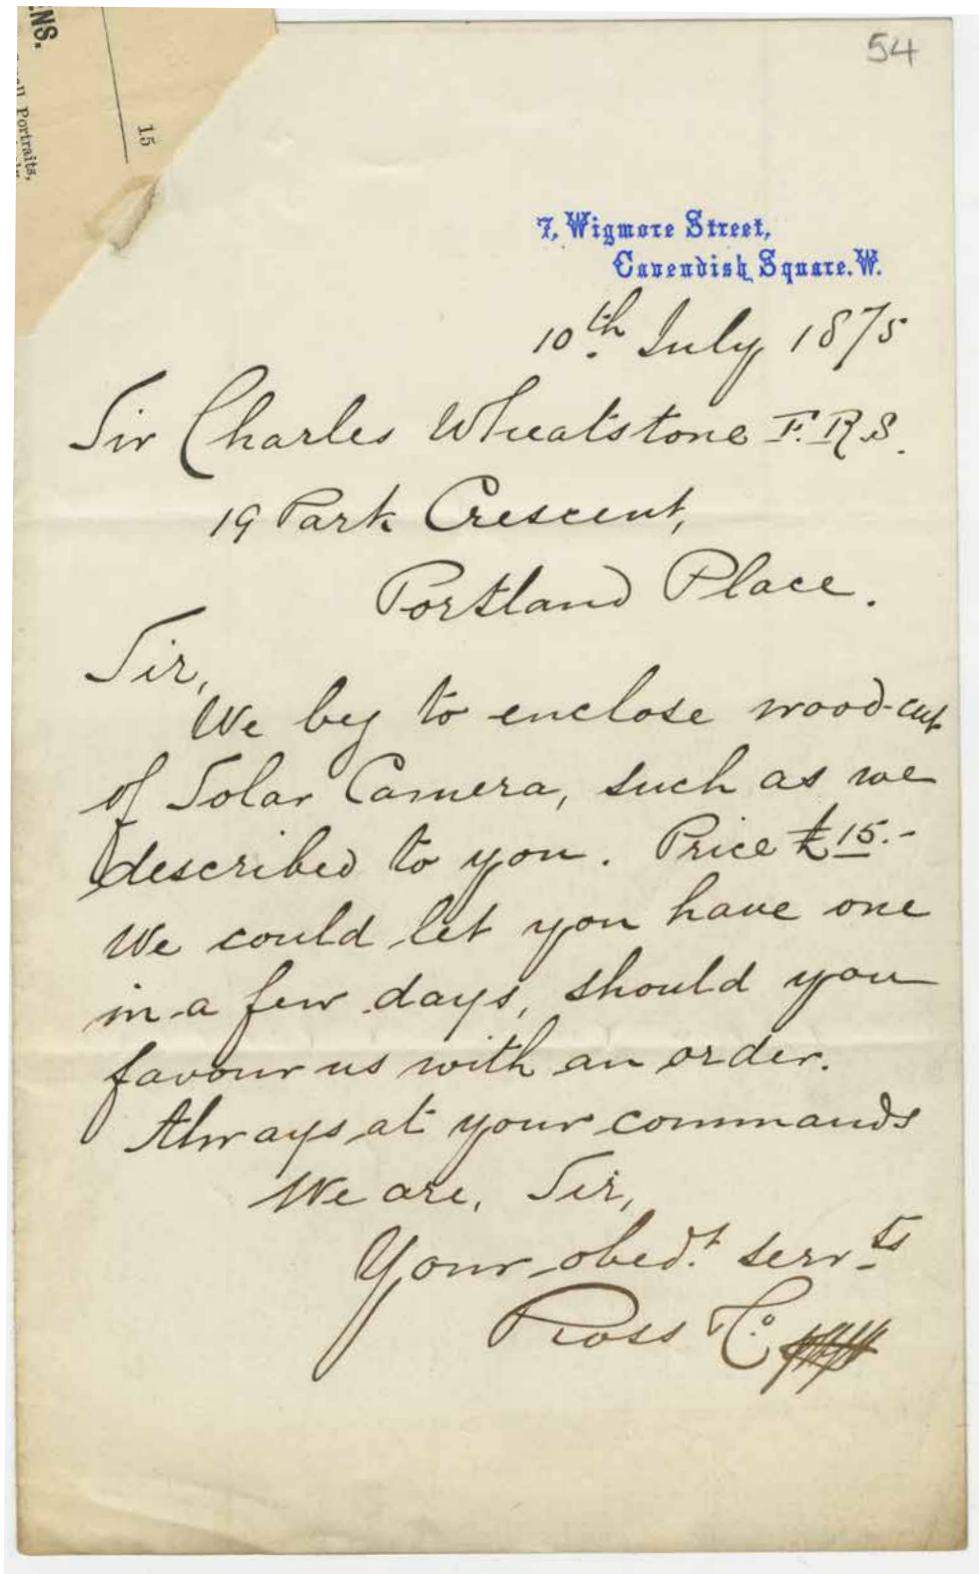 NS.
Portraits,
15
54
7, Wigmore Street,
Cavendish Square. W.
10th July 1875
Sir Charles Wheatstone F.R.S.
19 Park Crescent,
Portland Place.
Sir,
We beg to enclose wood-cut
of Solar Camera, such as we
described to you. Price £15.-
We could let you have one
in a few days, should you
favour us with an order.
Always at your commands
We are, Sir,
Your obedt. servts
Ross & Co